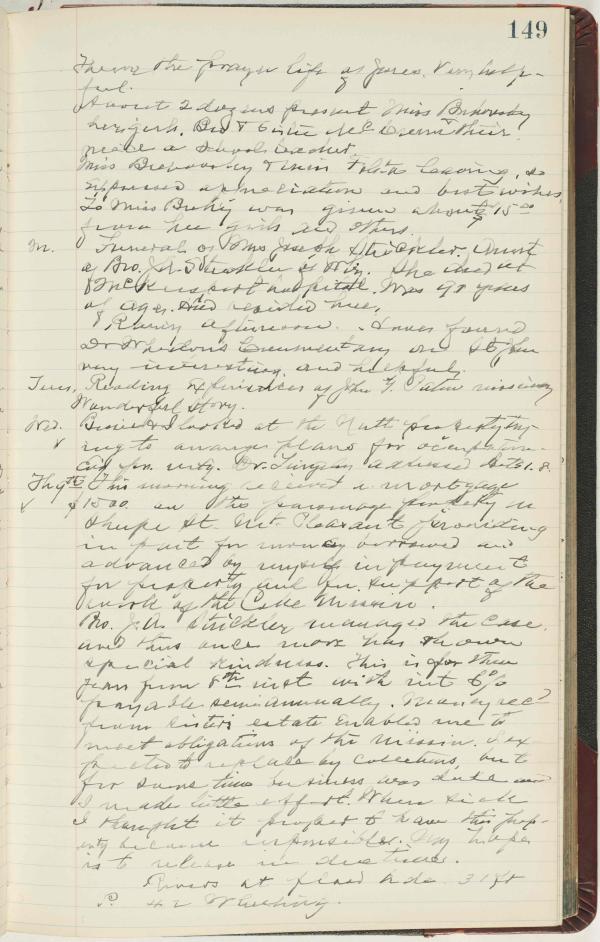 149
the prayer life of Jesus. Very help-
ful.
About 2 dozens present Miss
her girls,
Miss leaving, so
expressed appreciation and best wishes.
To Miss was given about $15.00
from her girls and others.
M. Funeral of Mrs Joseph Strickler. Aunt
of Bro. J.A. Strickler of . She died at
McKeesport hospital. Was 98 years
of age. Had resided here.
Rainy afternoon. I have found
Dr Commentary on St John
very interesting and helpful.
Tues. Reading experiences of John G. Paton missionary
Wonderful story.
Wed. I looked at the property try-
ing to arrange plans for occupation.
Cad. pr. mtg. Dr. addressed
Th 9th This morning received a mortgage
$1500. on the parsonage property on
Shupe St. Mt. Pleasant providing
in part for money borrowed and
advanced by myself in payment
for property and for support of the
work of the Coke Mission.
Bro. J.A. Strickler managed the case.
and thus once more has shown
special kindness. This is for three
years from 8th inst with int 6%
payable semiannually. Money rec'd
from sister's estate enabled me to
meet obligations of the mission. I ex
pected to replace by collections, but
for some time business was and
I made little effort. When sick
I thought it proper to have this prop-
erty become responsible. My hope
is to release in due time.
Rivers at flood tide. 31 ft
P. 42 Wheeling.